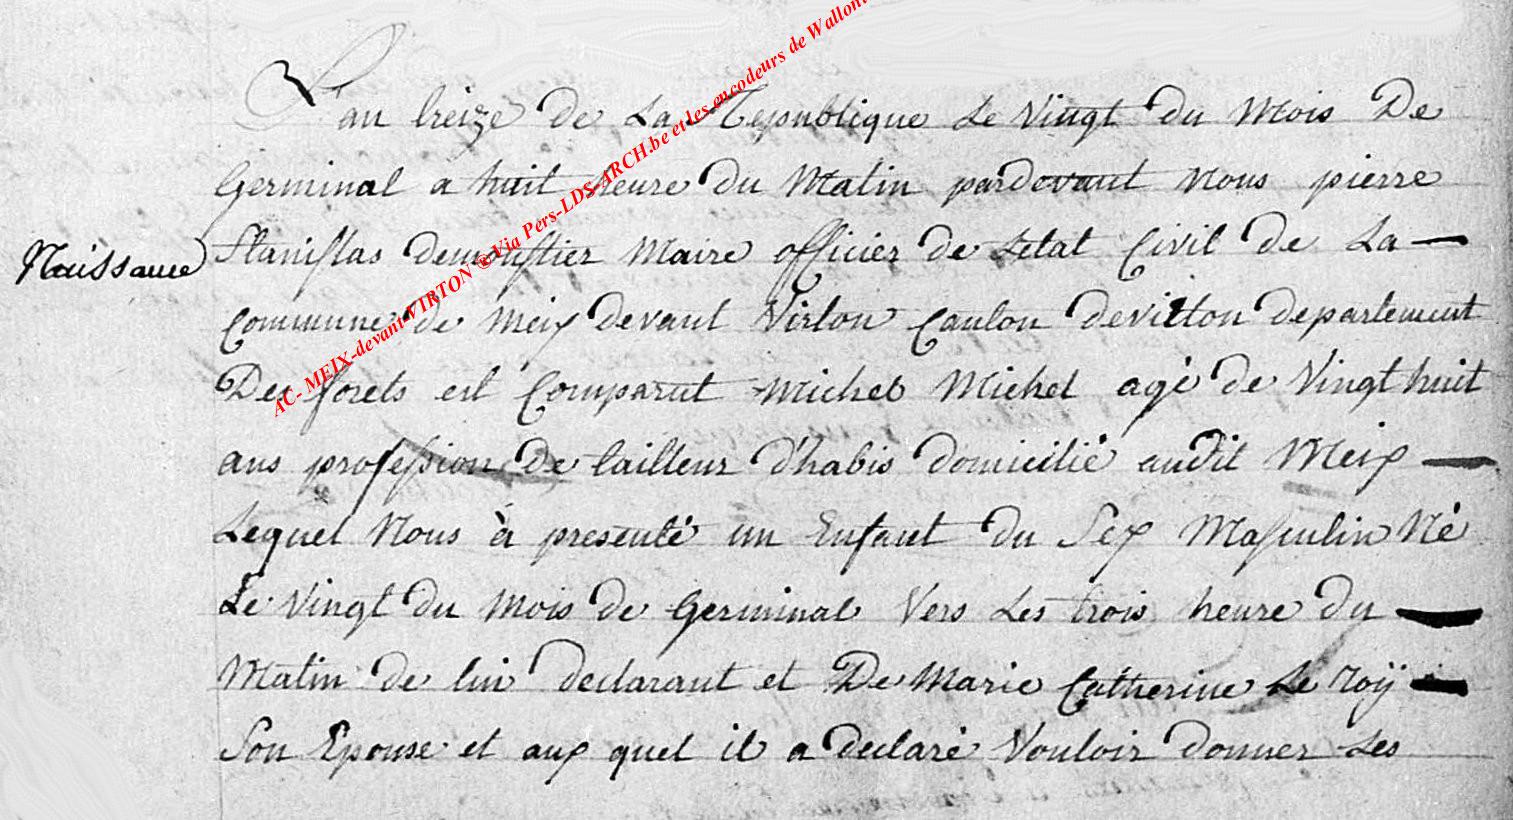 L'an treize de La Republique Le Vingt du Mois De
Germinal a huit heure du Matin pardevant Nous pierre
Naissance
Stanislas demoustier Maire officier de Letat Civil de La
Commune de Meix devant Virton Canton devirton departement
Des forets est Comparut Michel Michel agé de Vingt huit
ans profession de tailleur d'habis domicilié audit Meix
Lequel Nous à presenté un Enfant du Sex Masculin Né
Le Vingt du Mois de Germinal Vers Les trois heure du
Matin de lui declarant et De Marie Catherine Le Roÿ
Son Epouse et aux quel il a declaré Vouloir donner Les
AC- MEIX-devant-VIRTON ® Via Pers-LDS-ARCH.be et les encodeurs de Wallon